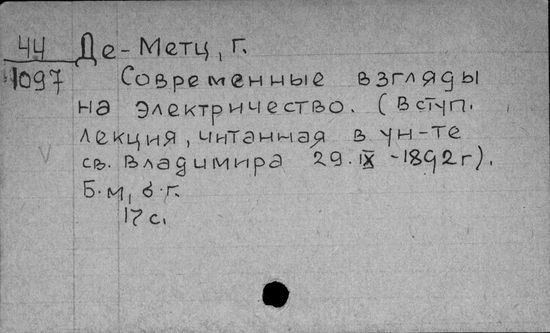 44 Де-Метц, Г.
1097 Современные взгляды
на электричество. (Вступ.
лекция, читанная в ун-те
св. Владимира 29.IX -1892г).
Б.м, б.г.
17 с.